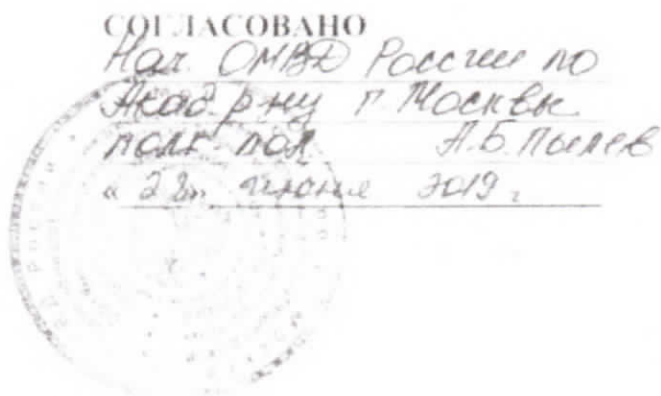 СОГЛАСОВАНО
Нач. ОМВД России по
Акад. р-ну г. Москвы
полк. пол. А.Б. Пылев
« 28 » июня 2019 г